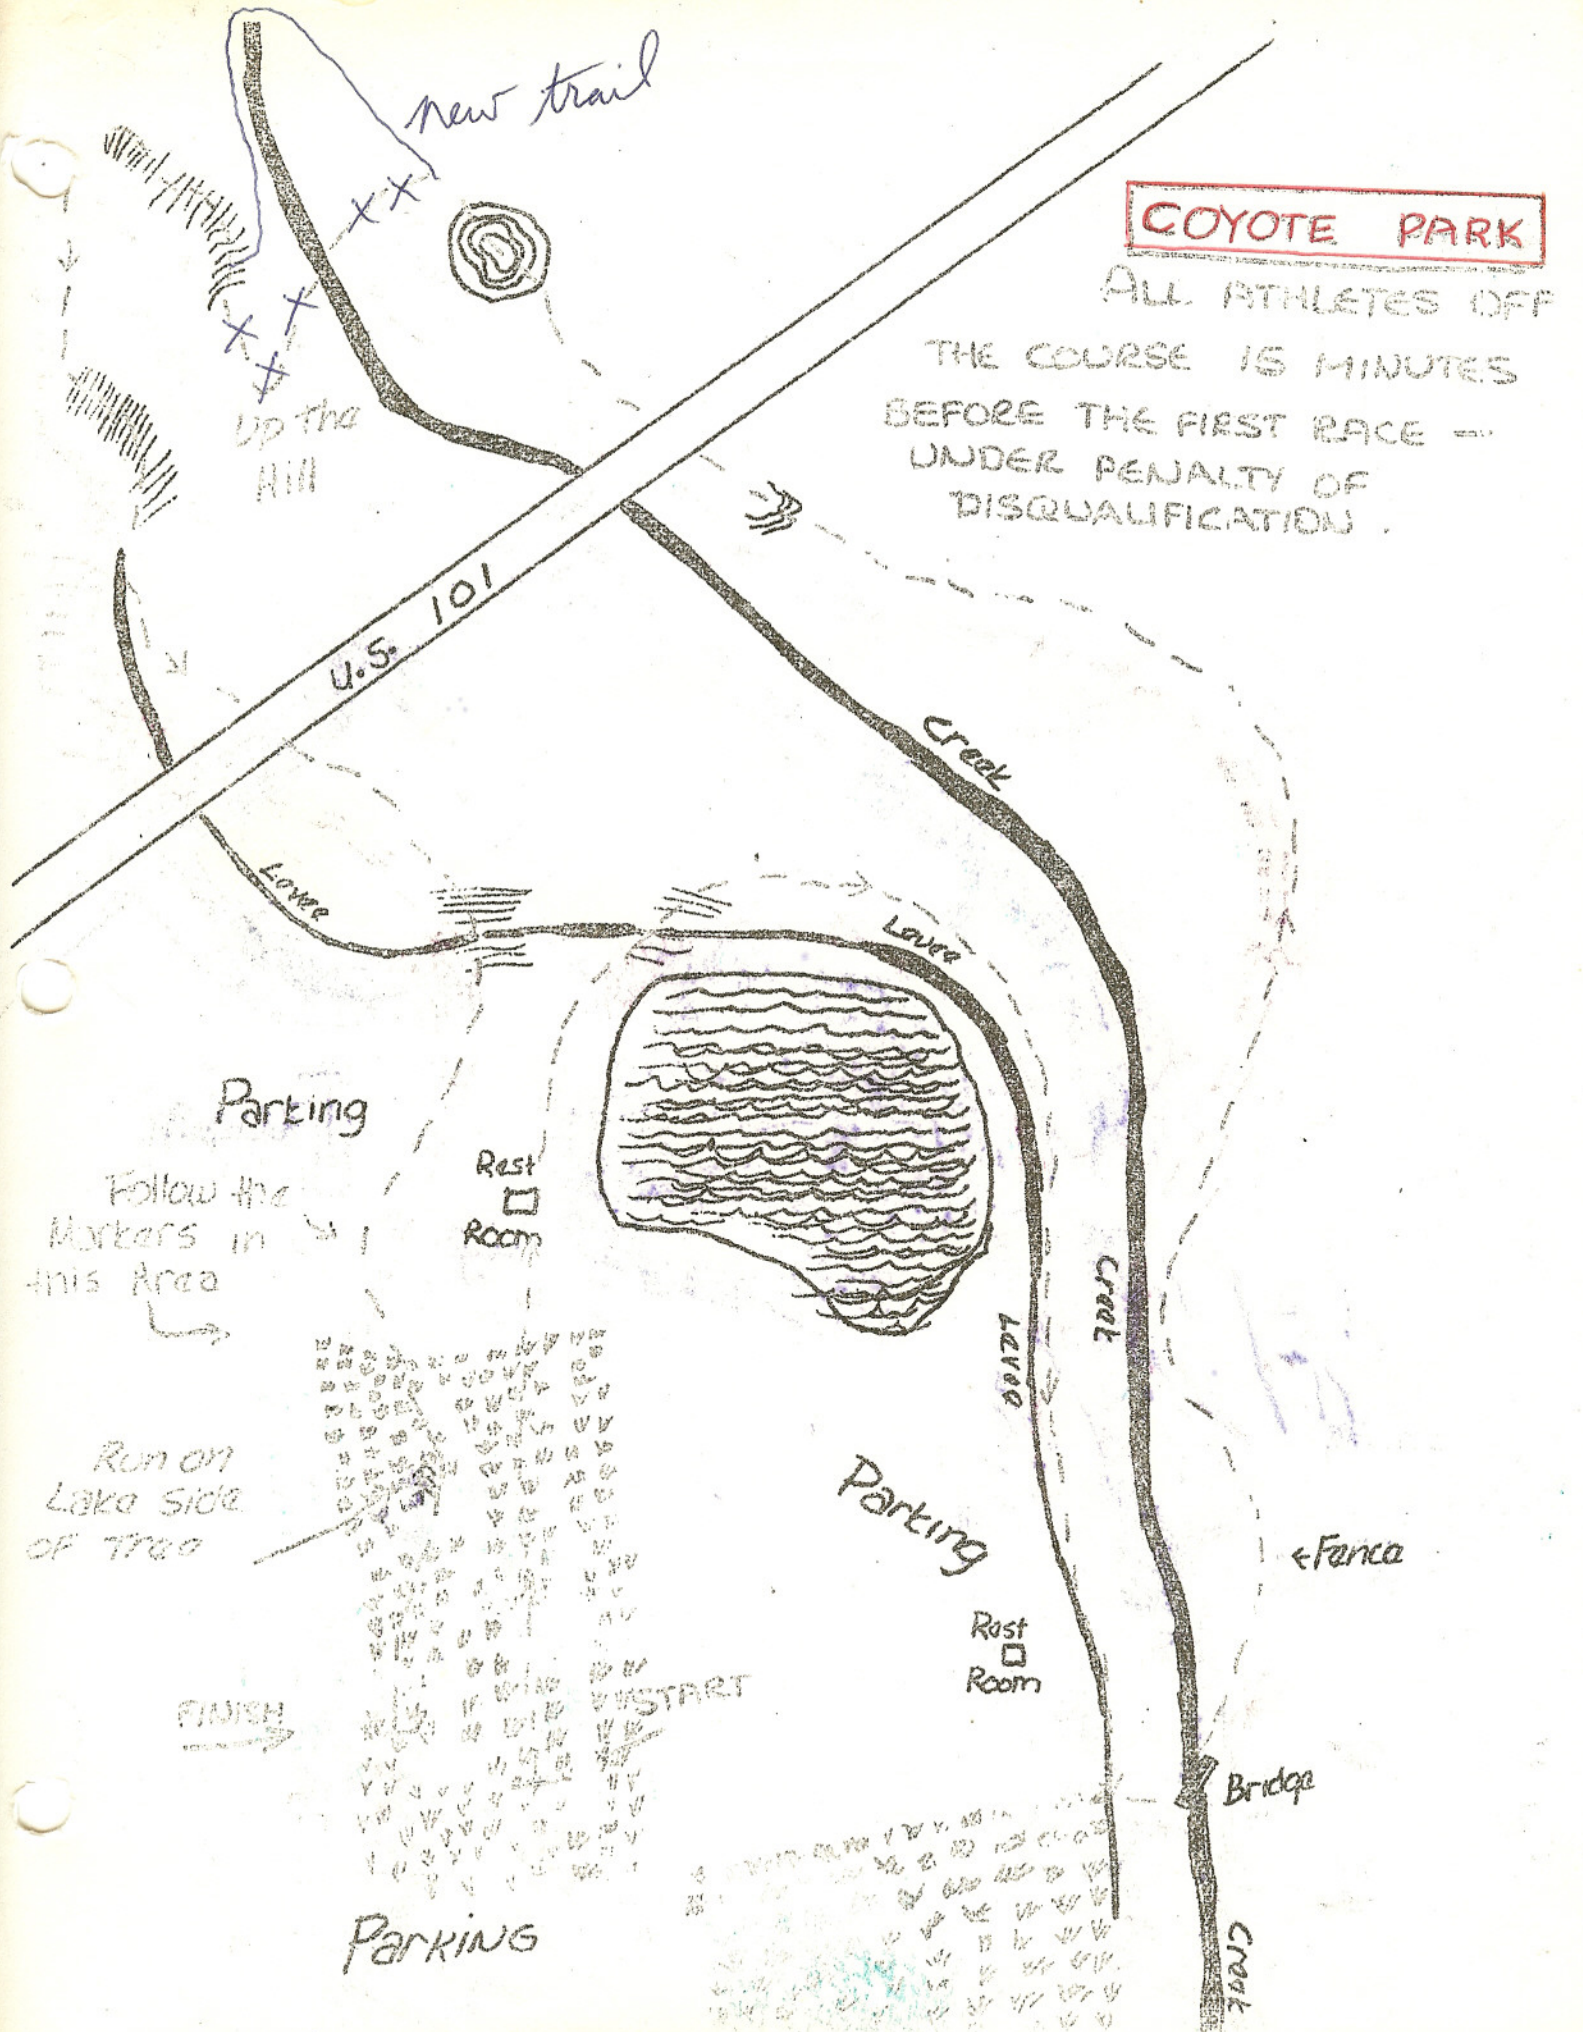 new trail
COYOTE PARK
ALL ATHLETES OFF
THE COURSE 15 MINUTES
BEFORE THE FIRST RACE —
UNDER PENALTY OF
DISQUALIFICATION.
Up the
Hill
U.S. 101
Creek
Levee
Levee
Parking
Rest
Room
Follow the
Markers in
this Area
Creek
Levee
Run on
Lake Side
OF Tree
Parking
Fence
Rest
Room
FINISH
START
Bridge
Parking
Creek